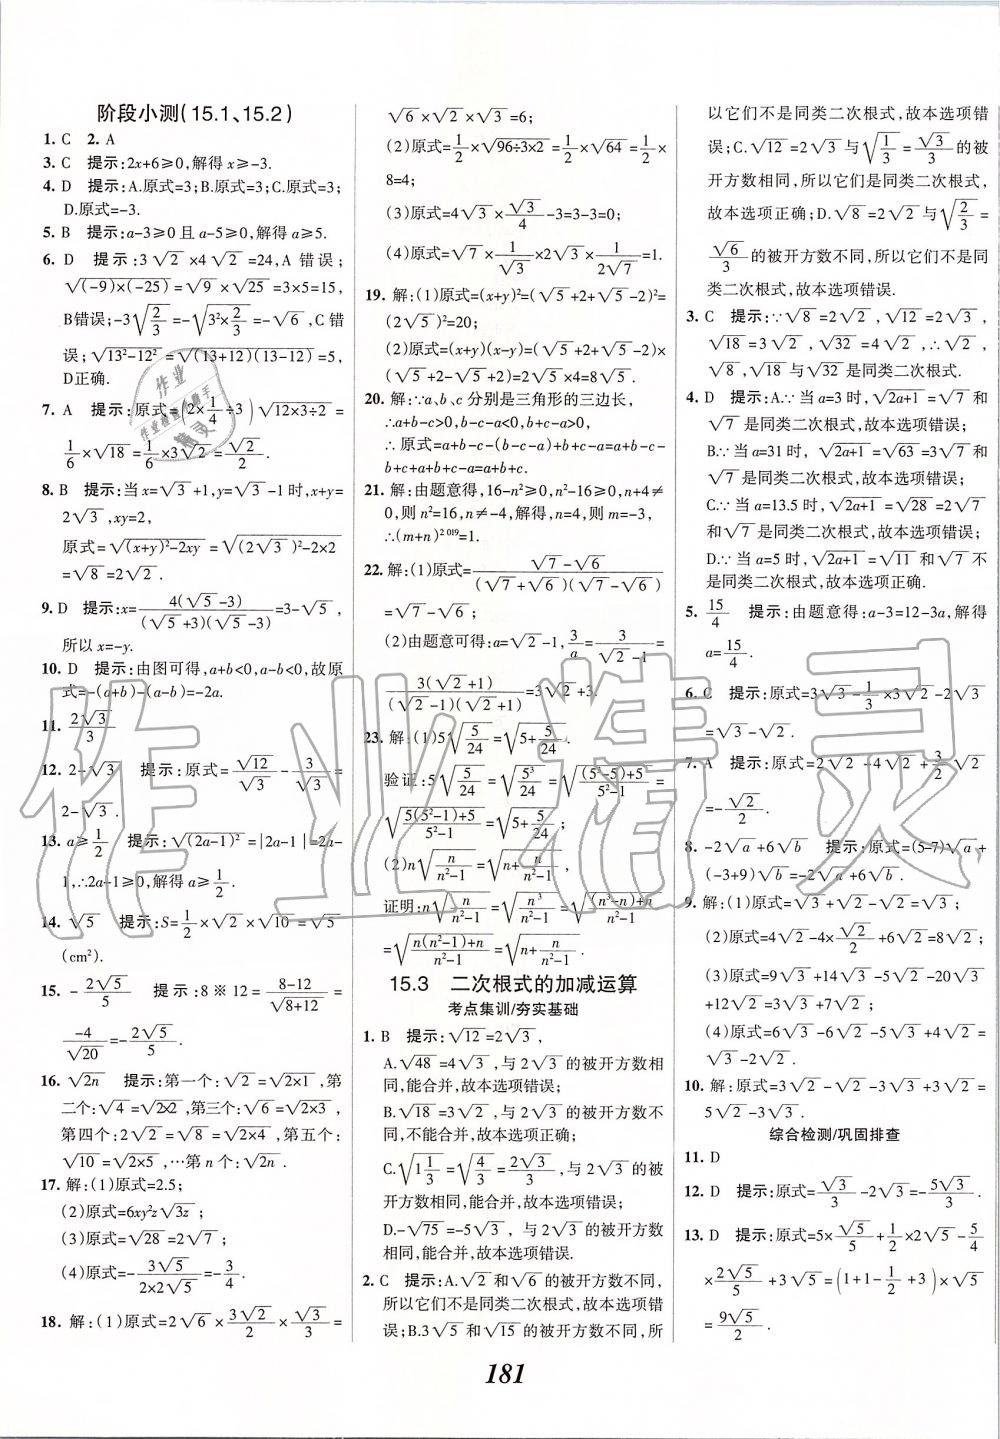 阶段小测(15.1、15.2)
1. C 2. A
3. C 提示:2x+6≥0,解得 x≥-3.
4. D 提示:A.原式=3;B.原式=3;C.原式=3;
D.原式=-3.
5. B 提示:a-3≥0 且 a-5≥0,解得 a≥5.
6. D 提示:3√2×4√2=24,A 错误;
√((-9)×(-25))=√9×√25=3×5=15,
B错误;-3√(2/3)=-√(3²×2/3)=-√6,C 错
误;√(13²-12²)=√((13+12)(13-12))=5,
D正确.
7. A 提示:原式=(2×1/4÷3)√(12×3÷2)=
1/6×√18=1/6×3√2=√2/2.
8. B 提示:当 x=√3+1,y=√3-1时,x+y=
2√3,xy=2,
原式=√((x+y)²-2xy)=√((2√3)²-2×2)
=√8=2√2.
9. D 提示:x=4(√5-3)/((√5+3)(√5-3))=3-√5,
所以 x=-y.
10. D 提示:由图可得,a+b<0,a-b<0,故原
式=-(a+b)-(a-b)=-2a.
11. 2√3/3
12. 2-√3 提示:原式=√12/√3-3/√3=
2-√3.
13. a≥1/2 提示:√((2a-1)²)=|2a-1|=2a-
1,∴2a-1≥0,解得 a≥1/2.
14. √5 提示:S=1/2×√2×√10=√5
(cm²).
15. -2√5/5 提示:8※12=(8-12)/√(8+12)=
-4/√20=-2√5/5.
16. √(2n) 提示:第一个:√2=√(2×1),第
二个:√4=√(2×2),第三个:√6=√(2×3),
第四个:2√2=√8=√(2×4),第五个:
√10=√(2×5),…第 n 个:√(2n).
17. 解:(1)原式=2.5;
(2)原式=6xy²z√(3z);
(3)原式=√28=2√7;
(4)原式=-3√5/(2×2√5)=-3/4.
18. 解:(1)原式=2√6×3√2/2×√3/3=
√6×√2×√3=6;
(2)原式=1/2×√(96÷3×2)=1/2×√64=1/2×
8=4;
(3)原式=4√3×√3/4-3=3-3=0;
(4)原式=√7×1/√3×2√3×1/(2√7)=1.
19. 解:(1)原式=(x+y)²=(√5+2+√5-2)²=
(2√5)²=20;
(2)原式=(x+y)(x-y)=(√5+2+√5-2)×
(√5+2-√5+2)=2√5×4=8√5.
20. 解:∵a、b、c 分别是三角形的三边长,
∴a+b-c>0,b-c-a<0,b+c-a>0,
∴原式=a+b-c-(b-c-a)+b+c-a=a+b-c-
b+c+a+b+c-a=a+b+c.
21. 解:由题意得,16-n²≥0,n²-16≥0,n+4≠
0,则 n²=16,n≠-4,解得,n=4,则 m=-3,
∴(m+n)²⁰¹⁹=1.
22. 解:(1)原式=(√7-√6)/((√7+√6)(√7-√6))
=√7-√6;
(2)由题意可得:a=√2-1,3/a=3/(√2-1)=
3(√2+1)/((√2-1)(√2+1))=3√2+3.
23. 解:(1)5√(5/24)=√(5+5/24).
验证:5√(5/24)=√(5³/24)=√(((5³-5)+5)/(5²-1))=
√((5(5²-1)+5)/(5²-1))=√(5+5/24);
(2)n√(n/(n²-1))=√(n+n/(n²-1))
证明:n√(n/(n²-1))=√(n³/(n²-1))=√((n³-n+n)/(n²-1))
=√((n(n²-1)+n)/(n²-1))=√(n+n/(n²-1)).
15.3 二次根式的加减运算
考点集训/夯实基础
1. B 提示:√12=2√3,
A.√48=4√3,与 2√3 的被开方数相
同,能合并,故本选项错误;
B.√18=3√2,与 2√3 的被开方数不
同,不能合并,故本选项正确;
C.√(1 1/3)=√(4/3)=2√3/3,与 2√3 的被
开方数相同,能合并,故本选项错误;
D.-√75=-5√3,与 2√3 的被开方数
相同,能合并,故本选项错误.
2. C 提示:A.√2 和√6 的被开方数不同,
所以它们不是同类二次根式,故本选项错
误;B.3√5 和√15 的被开方数不同,所
以它们不是同类二次根式,故本选项错
误;C.√12=2√3 与√(1/3)=√3/3 的被
开方数相同,所以它们是同类二次根式,
故本选项正确;D.√8=2√2 与√(2/3)=
√6/3 的被开方数不同,所以它们不是同
类二次根式,故本选项错误.
3. C 提示:∵√8=2√2,√12=2√3,
√18=3√2,√32=4√2,∴√2,
√8,√18 与√32 是同类二次根式.
4. D 提示:A.∵当 a=3时,√(2a+1)=√7 和
√7 是同类二次根式,故本选项错误;
B.∵当 a=31 时,√(2a+1)=√63=3√7 和
√7 是同类二次根式,故本选项错误;
C.∵当 a=13.5 时,√(2a+1)=√28=2√7
和√7 是同类二次根式,故本选项错误;
D.∵当 a=5 时,√(2a+1)=√11 和√7 不
是同类二次根式,故本选项正确.
5. 15/4 提示:由题意得:a-3=12-3a,解得
a=15/4.
6. C 提示:原式=3√3-1/3×3√2-2√3
=√3-√2.
7. A 提示:原式=2√2-4√2+3/2√2
=-√2/2.
8. -2√a+6√b 提示:原式=(5-7)√a+
(-3+9)√b=-2√a+6√b.
9. 解:(1)原式=√3+√2-√2=√3;
(2)原式=4√2-4×√2/2+6√2=8√2;
(3)原式=9√3+14√3-5√2-20√3
+12√2=3√3+7√2;
(4)原式=6√3-6√2-5√3+4√2=
√3-2√2.
10. 解:原式=3√2-√2-3√3+3√2=
5√2-3√3.
综合检测/巩固排查
11. D
12. D 提示:原式=√3/3-2√3=-5√3/3.
13. D 提示:原式=5×√5/5+1/2×2√5-5/4
×2√5/5+3√5=(1+1-1/2+3)×√5
=9√5/2.
181
作业精灵
作业
作业检查小助手
精灵